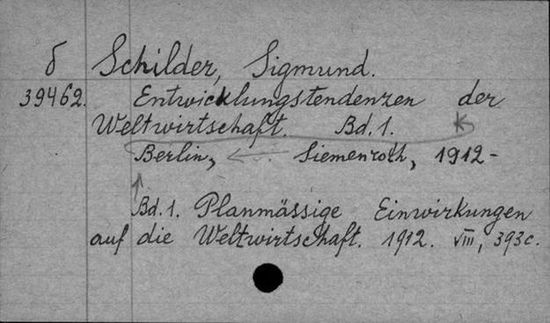 δ Schilder, Sigmund.
39462. Entwicklungstendenzen der
Weltwirtschaft. Bd. 1.
Berlin, Siemenroth, 1912-
Bd. 1. Planmässige Einwirkungen
auf die Weltwirtschaft. 1912. VIII, 393c.